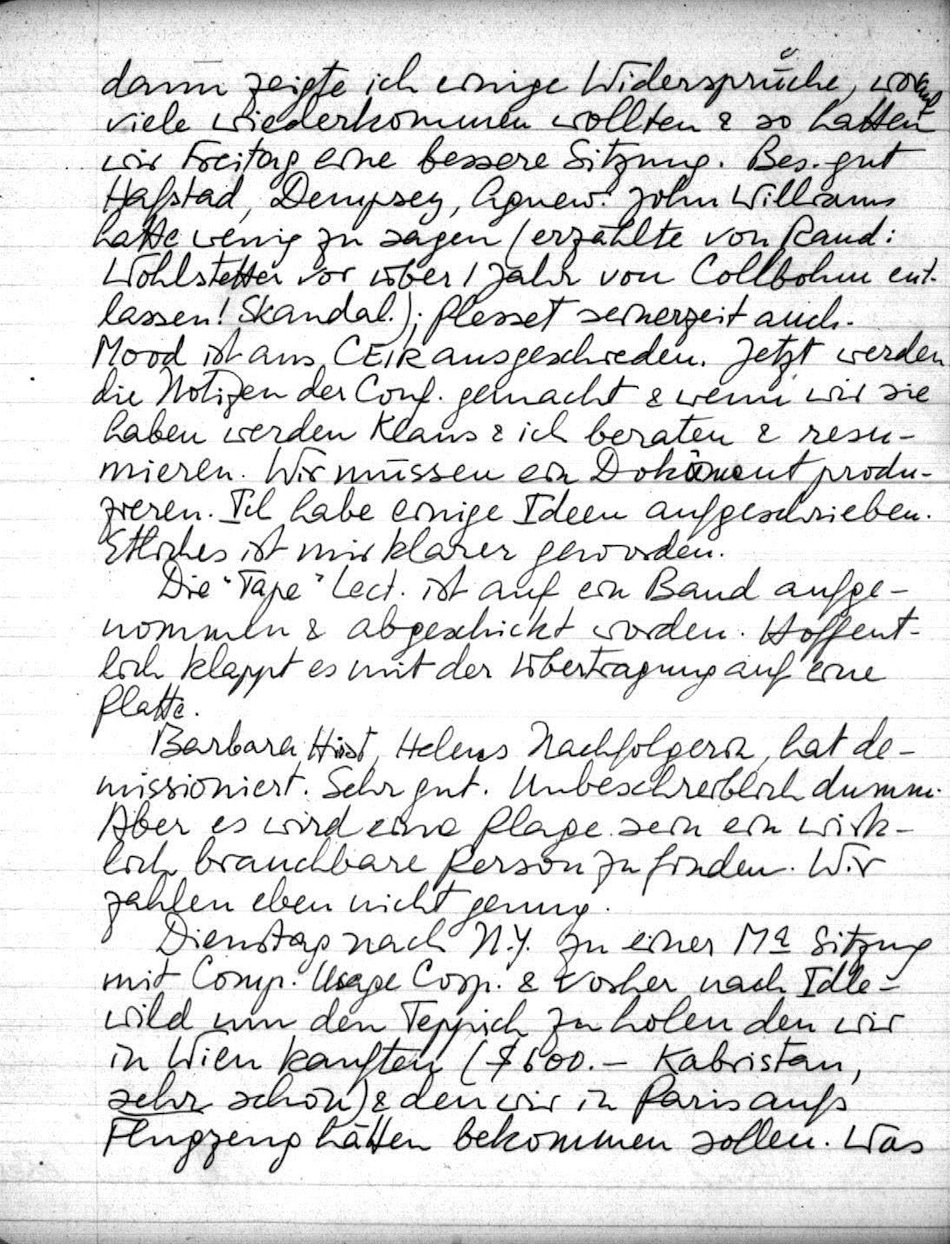 dann zeigte ich einige Widersprüche, worauf
viele wiederkommen wollten & so hatten
wir Freitag eine bessere Sitzung. Bes. gut
Hafstad, Dempsey, Agnew. John Williams
hatte wenig zu sagen (erzählte von Rand:
Wohlstetter vor über 1 Jahr von Collbohm ent-
lassen! Skandal.); Plesset seinerzeit auch.
Mood ist aus CEIR ausgeschieden. Jetzt werden
die Notizen der Conf. gemacht & wenn wir sie
haben werden Klaus & ich beraten & resu-
mieren. Wir müssen ein Dokument produ-
zieren. Ich habe einige Ideen aufgeschrieben.
Etliches ist mir klarer geworden.
Die "Tape" Lect. ist auf ein Band aufge-
nommen & abgeschickt worden. Hoffent-
lich klappt es mit der Übertragung auf eine
Platte.
Barbara Hirst, Helens Nachfolgerin, hat de-
missioniert. Sehr gut. Unbeschreiblich dumm.
Aber es wird eine Plage sein ein wirk-
lich brauchbare Person zu finden. Wir
zahlen eben nicht genug.
Dienstag nach N.Y. zu einer Ma Sitzung
mit Comp. Usage Corp. & vorher nach Idle-
wild um den Teppich zu holen den wir
in Wien kauften ($600.– Kabristan,
sehr schön) & den wir in Paris aufs
Flugzeug hätten bekommen sollen. Was